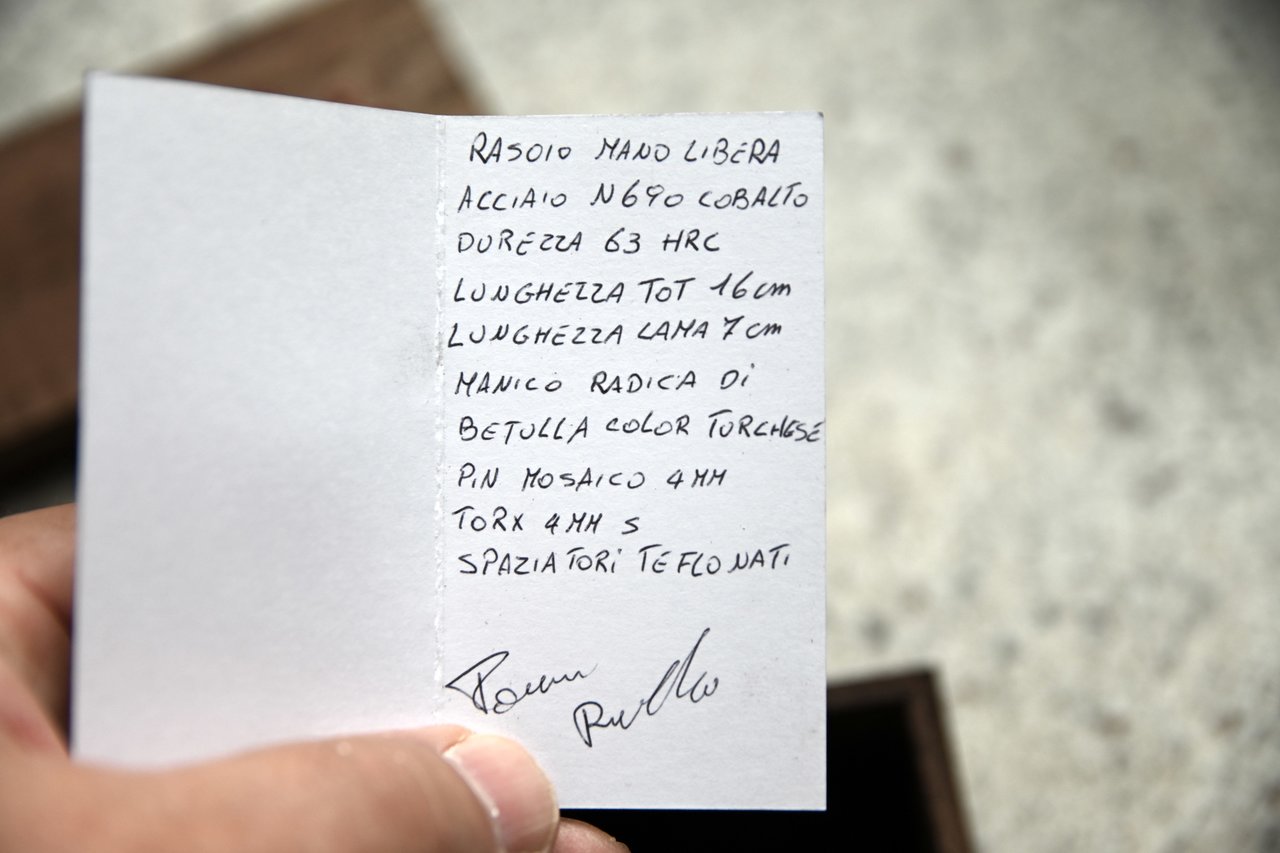 RASOIO MANO LIBERA
ACCIAIO N690 COBALTO
DUREZZA 63 HRC
LUNGHEZZA TOT 16cm
LUNGHEZZA LAMA 7cm
MANICO RADICA Di
BETULLA COLOR TURCHESE
PiN MOSAICO 4MM
TORX 4MM S
SPAZIATORi TEFLONATi